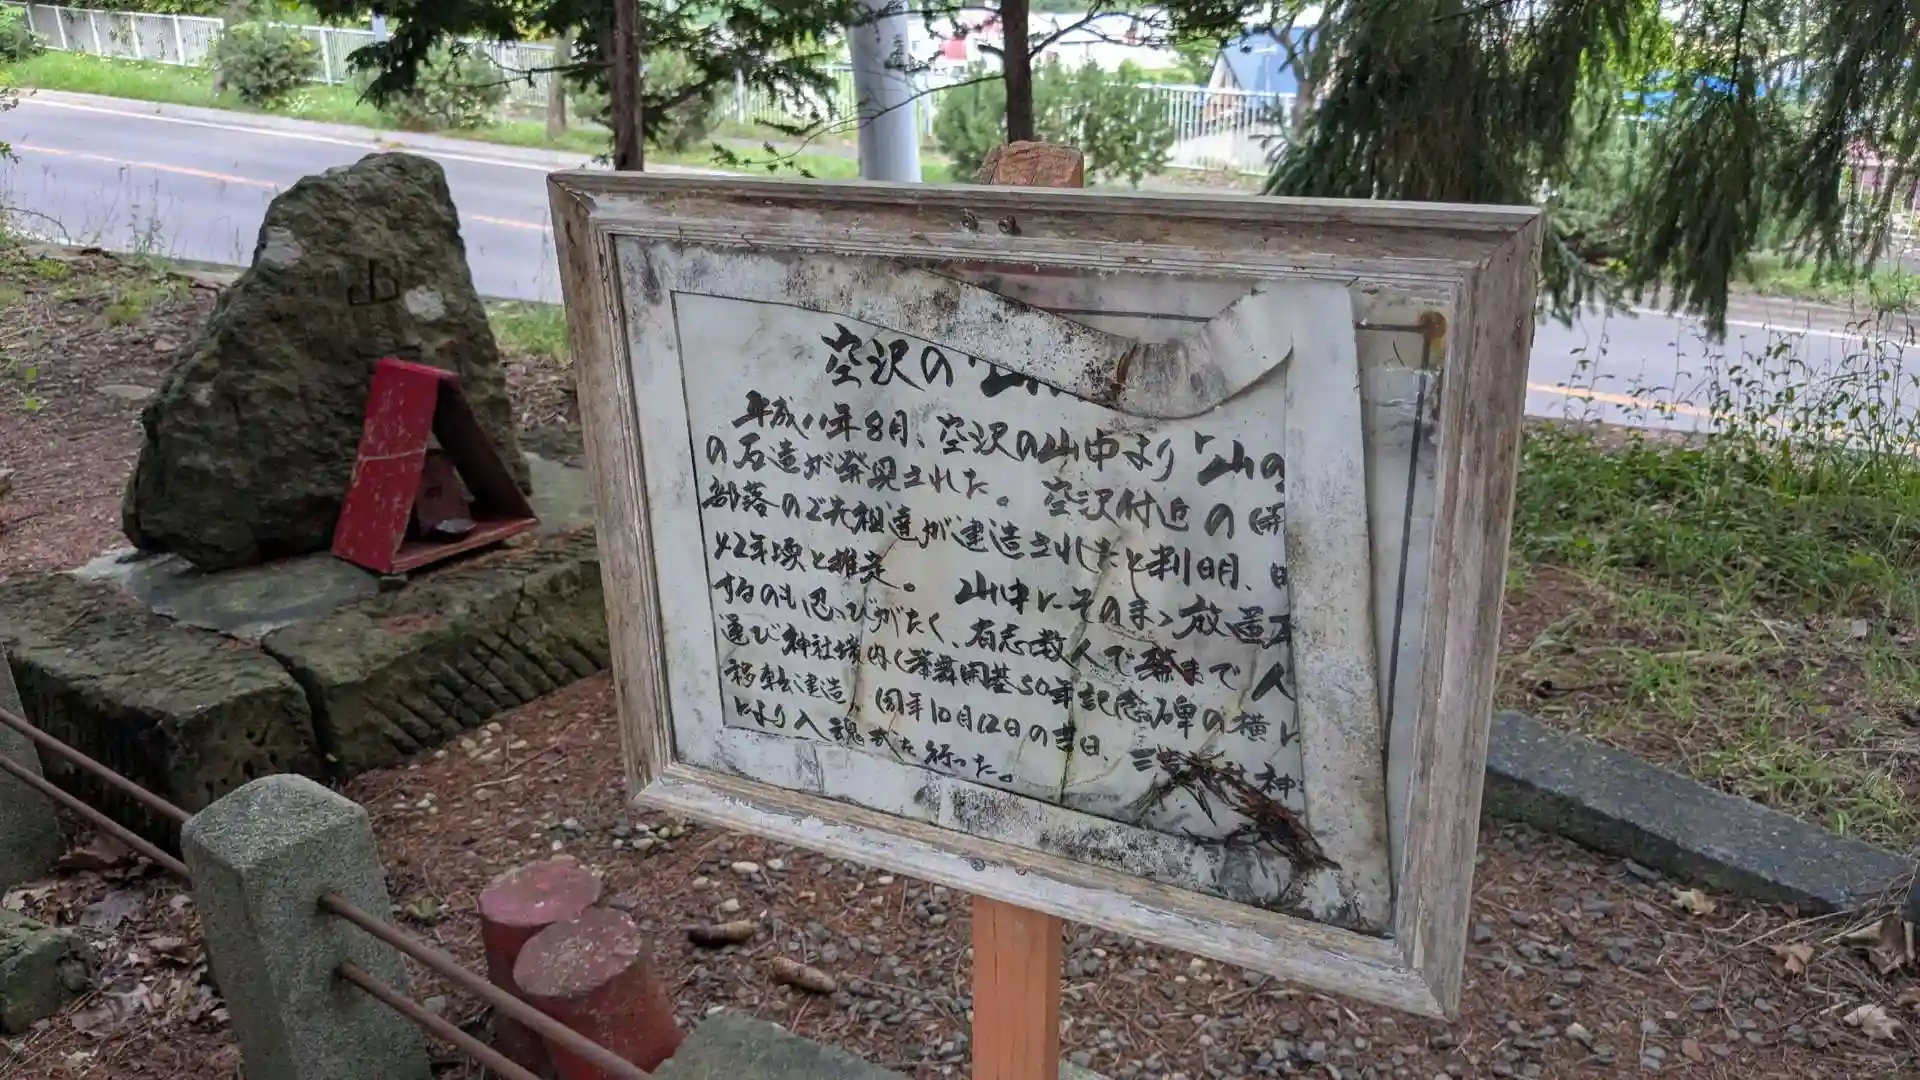 山
空沢の「山
平成11年8月、空沢の山中より「山の
の石造が発見された。空沢付近の開
部落のご先祖達が建造されたと判明、
42年頃と推定。山中にそのまゝ放置
するのも忍びがたく、有志数人で麓まで人
運び神社境内(蕣舞開基50年記念碑の横に
移転建造、同年10月12日の吉日、
により入魂式を行った。